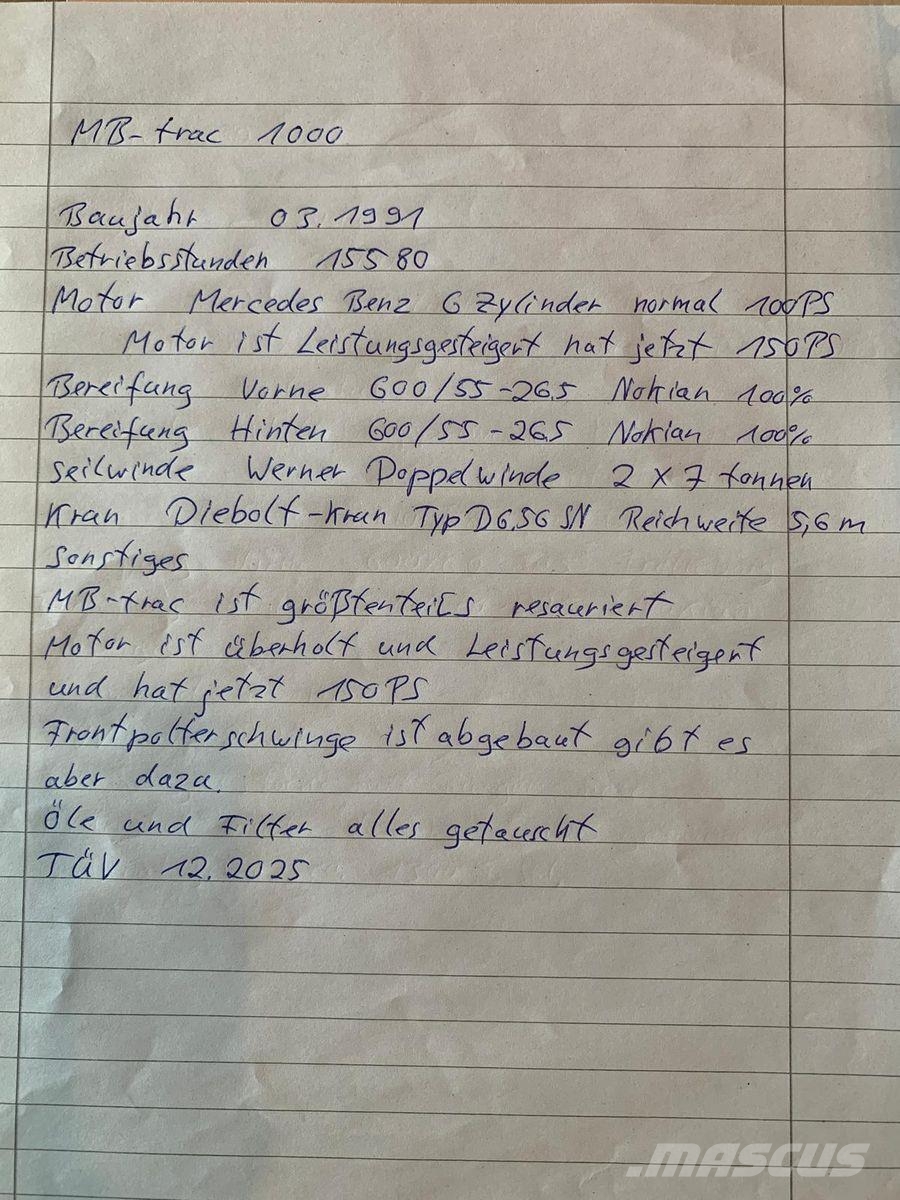 MB-trac 1000
Baujahr 03.1991
Betriebsstunden 15580
Motor Mercedes Benz 6 Zylinder normal 100PS
Motor ist Leistungsgesteigert hat jetzt 150PS
Bereifung Vorne 600/55-26.5 Nokian 100%
Bereifung Hinten 600/55-26.5 Nokian 100%
Seilwinde Werner Doppelwinde 2 x 7 tonnen
Kran Diebolt-Kran Typ D6.56 SN Reichweite 5,6 m
Sonstiges
MB-trac ist größtenteils resauriert
Motor ist überholt und Leistungsgesteigert
und hat jetzt 150PS
Frontpolterschwinge ist abgebaut gibt es
aber dazu.
Öle und Filter alles getauscht
TÜV 12.2025
.mascus